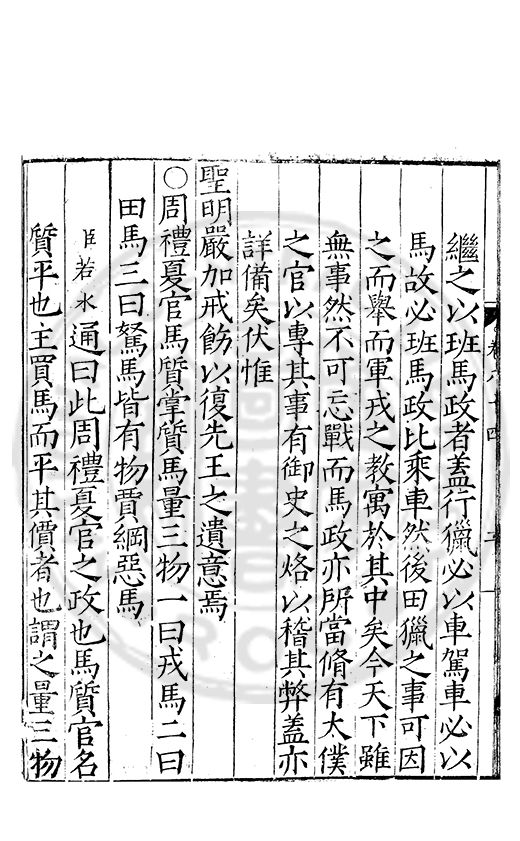 卷六十四
繼之以班馬政者蓋行獵必以車駕車必以
馬故必班馬政比乘車然後田獵之事可因
之而舉而軍戎之教寓於其中矣今天下雖
無事然不可忘戰而馬政亦所當脩有太僕
之官以專其事有御史之烙以稽其弊蓋亦
詳備矣伏惟
聖明嚴加戒飭以復先王之遺意焉
○周禮夏官馬質掌質馬量三物一曰戎馬二曰
田馬三曰駑馬皆有物賈綱惡馬
臣若水通曰此周禮夏官之政也馬質官名
質平也主買馬而平其價者也謂之量三物